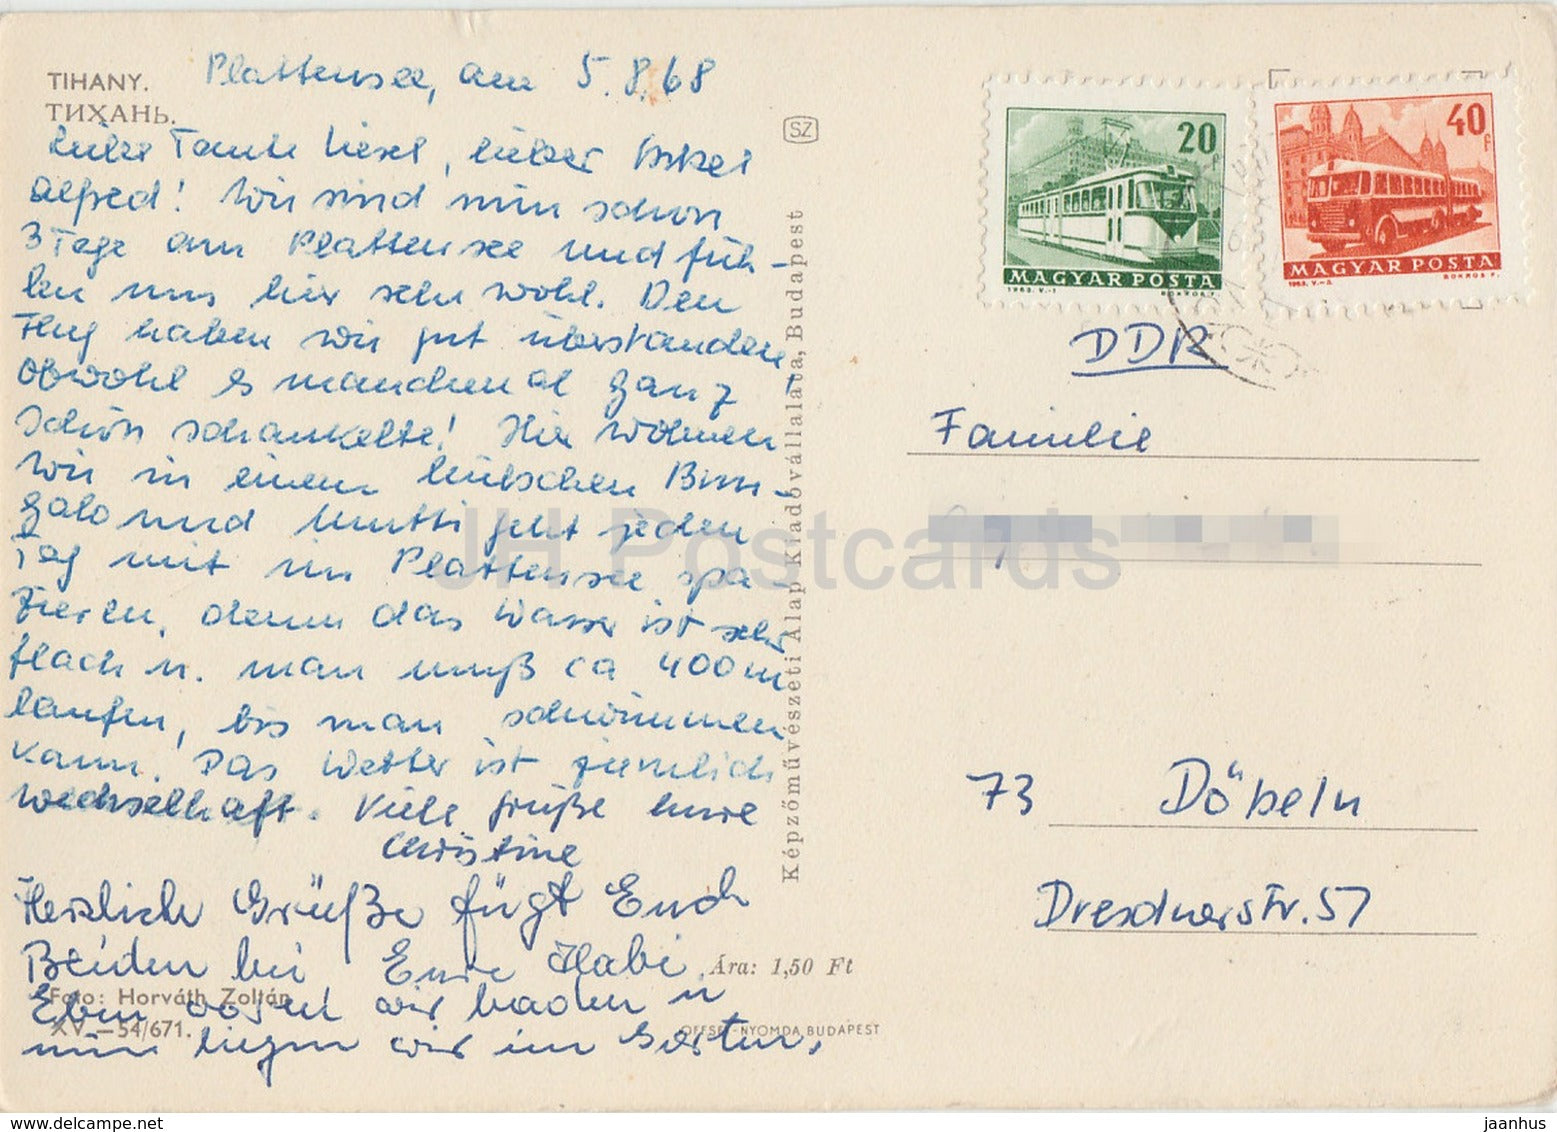 TIHANY.
ТИХАНЬ.
Plattensee, am 5.8.68
Liebe Tante Liesel, lieber Onkel
Alfred! Wir sind nun schon
3 Tage am Plattensee und füh-
len uns hier sehr wohl. Den
Flug haben wir gut überstanden,
obwohl es manchmal ganz
schön schaukelte! Hier wohnen
wir in einem hübschen Bun-
galo und Mutti geht jeden
Tag mit im Plattensee spa-
zieren, denn das Wasser ist sehr
flach u. man muß ca 400 m
laufen, bis man schwimmen
kann. Das Wetter ist ziemlich
wechselhaft. Viele Grüße Eure
Christine
Herzlich Grüße fügt Euch
Beiden bei Eure Habi.
Eben waren wir baden u
nun liegen wir im Garten.
Foto: Horváth Zoltán
XV.—54/671.
Ára: 1,50 Ft
OFFSET-NYOMDA BUDAPEST
SZ
Képzőművészeti Alap Kiadóvállalata, Budapest
20 f
MAGYAR POSTA
1963. V.-1
40 f
MAGYAR POSTA
1963. V.-3.
BOKROS F.
DDR
Familie
73 Döbeln
Dresdnerstr. 57
JH Postcards
www.delcampe.net
jaanhus